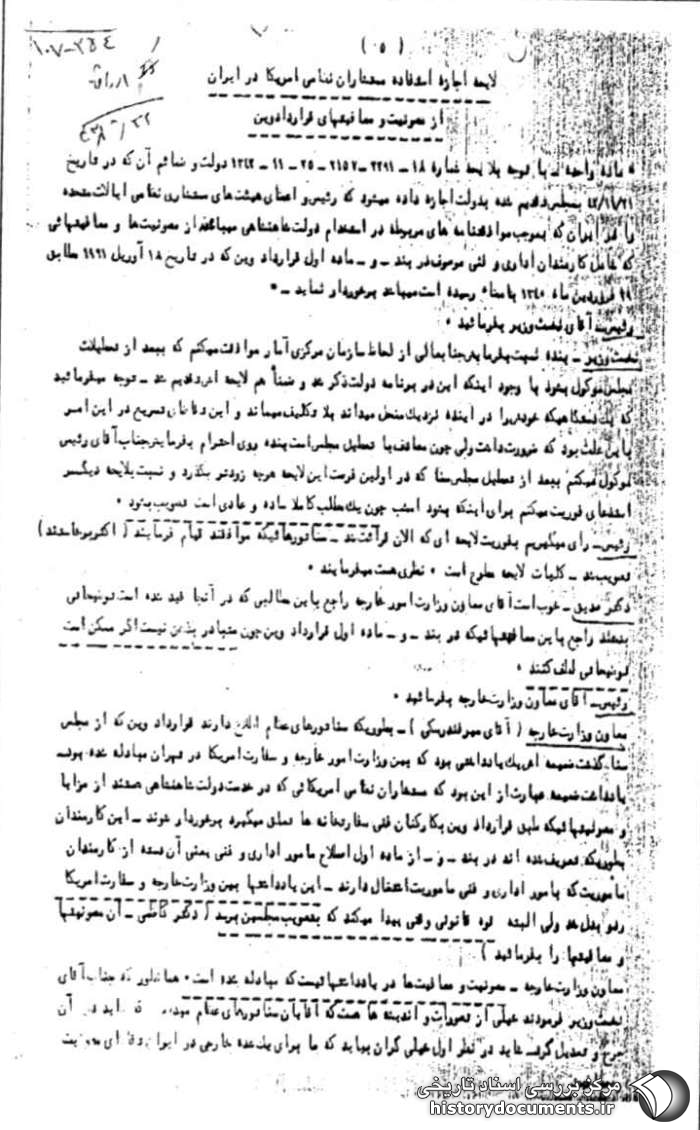 ۱۰۷-۲۵۴
( ۵ )
لایحه اجازه استفاده مستشاران نظامی امریکا در ایران
از مصونیت و معافیتهای قرارداد وین
" ماده واحده ـ با توجه بلایحه شماره ۱۸ ـ ۲۲۹۱ ـ ۲۱۵۷ ـ ۲۵ ـ ۱۱ ـ ۱۳۴۲ دولت و ضمائم آن که در تاریخ
۴۲/۱۱/۲۱ بمجلس تقدیم شده بدولت اجازه داده میشود که رئیس و اعضای هیئت‌های مستشاری نظامی ایالات متحده
را در ایران که بموجب موافقتنامه های مربوطه در استخدام دولت شاهنشاهی میباشند از مصونیت‌ها و معافیتهائی
که شامل کارمندان اداری و فنی موصوف در بند ـ و ـ ماده اول قرارداد وین که در تاریخ ۱۸ آوریل ۱۹۶۱ مطابق
۲۹ فروردین ماه ۱۳۴۰ بامضاء رسیده است میباشد برخوردار نماید ـ "
رئیس ـ آقای نخست وزیر بفرمائید ۰
نخست وزیر ـ بنده نسبت بفرمایش جنابعالی از لحاظ سازمان مرکزی آمار موافقت میکنم که ببعد از تعطیلات
مجلس موکول بشود با وجود اینکه این در برنامه دولت ذکر شد و ضمناً هم لایحه اش تقدیم شد ـ توجه میفرمائید
که یک دستگاهیکه خودش را در آینده نزدیک منحل میداند بلا تکلیف میماند و این تقاضای تسریع در این امر
باین علت بود که ضرورت داشت ولی چون مصادف با تعطیل مجلس است بنده روی احترام بفرمایش جناب آقای رئیس
موکول میکنم ببعد از تعطیل مجلس سنا که در اولین فرصت این لایحه هرچه زودتر بگذرد و نسبت بلایحه دیگر
استدعای فوریت میکنم برای اینکه بشود امشب چون یک مطلب کاملا ساده و عادی است تصویب بشود ۰
رئیس ـ رای میگیریم بفوریت لایحه ای که الان قرائت شد ـ سناتورهائیکه موافقند قیام فرمایند ( اکثر برخاستند )
تصویب شد ـ کلیات لایحه مطرح است ۰ نظری هست میفرمایند ۰
دکتر صدیق ـ خوب است آقای معاون وزارت امور خارجه راجع باین مطالبی که در آنجا قید شده است توضیحاتی
بدهند راجع باین معافیتهائیکه در بند ـ و ـ ماده اول قرارداد وین چون متبادر بذهن نیست اگر ممکن است
توضیحاتی لطف کنند ۰
رئیس ـ آقای معاون وزارت خارجه بفرمائید ۰
معاون وزارت خارجه ( آقای میرفندرسکی ) ـ بطوریکه سناتورهای عظام اطلاع دارند قرارداد وین که از مجلس
سنا گذشت ضمیمه اش یک یادداشتی بود که بین وزارت امور خارجه و سفارت امریکا در تهران مبادله شده بود
یادداشت ضمیمه عبارت از این بود که مستشاران نظامی امریکائی که در خدمت دولت شاهنشاهی هستند از مزایا
و مصونیتهائیکه طبق قرارداد وین بکارکنان فنی سفارتخانه ها تعلق میگیرد برخوردار شوند ـ این کارمندان
بطوریکه تعریف شده اند در بند ـ و ـ از ماده اول اصطلاح مامور اداری و فنی یعنی آن دسته از کارمندان
ماموریت که بامور اداری و فنی ماموریت اشتغال دارند ـ این یادداشتها بین وزارت خارجه و سفارت امریکا
رد و بدل شد ولی البته قوه قانونی وقتی پیدا میکند که بتصویب مجلسین برسد ( دکتر کاظمی ـ آن مصونیتها
و معافیتها را بفرمائید )
معاون وزارت خارجه ـ مصونیت و معافیت‌ها در یادداشتهائیست که مبادله شده است ۰ همانطور که جناب آقای
نخست وزیر فرمودند خیلی از تصورات و اندیشه ها هست که آقایان سناتورهای عظام
جرح و تعدیل کرد شاید در نظر اول خیلی گران بیاید که ما برای یک عده خارجی در ایران تقاضای مصونیت
مرکز بررسی اسناد تاریخی
historydocuments.ir